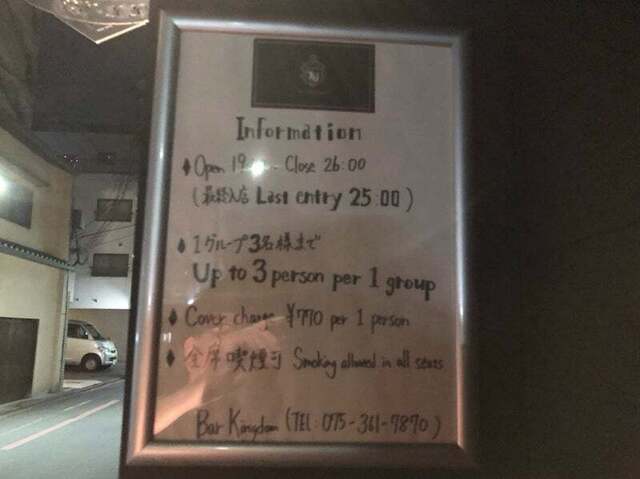 Information
♦ Open 19: - Close 26:00
(最終入店 Last entry 25:00)
♦ 1グループ3名様まで
Up to 3 person per 1 group
♦ Cover charge ¥770 per 1 person
♦ 全席喫煙可 Smoking allowed in all seats
Bar Kingdom (TEL: 075-361-7870)